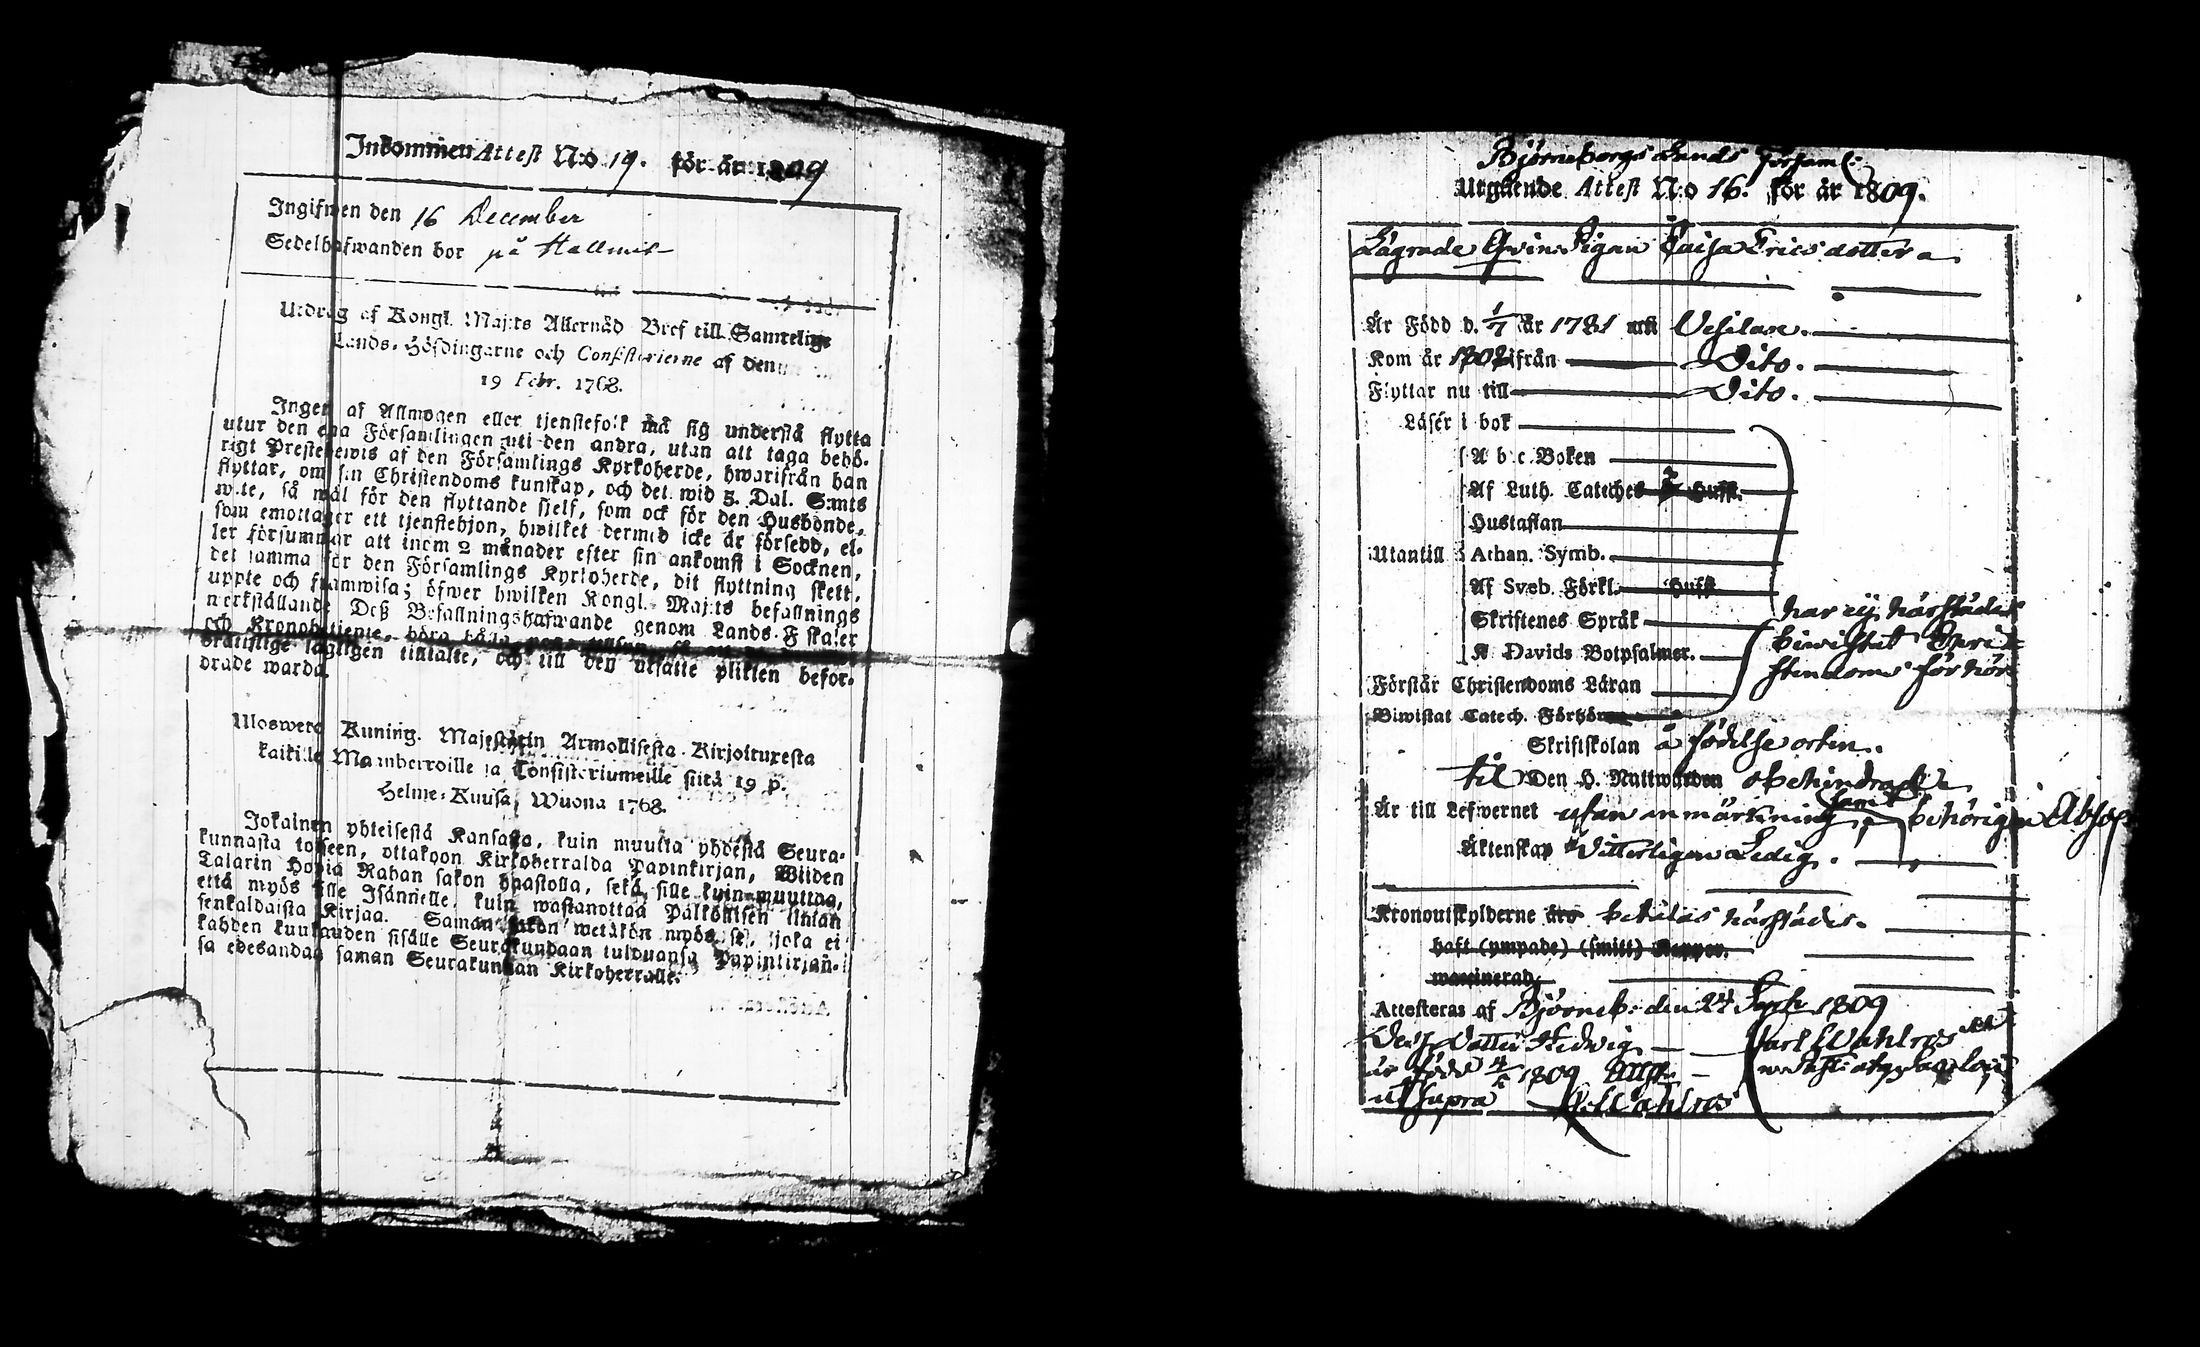 Inkommen Attest N:o 19. för år 1809
Ingifwen den 16 December
Sedelhafwanden bor på Hallmis
Utdrag af Kongl. Maj:ts Allernåd. Bref till Samtelige
Lands-Höfdingarne och Consistorierne af den
19 Febr. 1768.
Ingen af Allmogen eller tjenstefolk må sig understå flytta
utur den ena Församlingen uti den andra, utan att taga behö-
rigt Prestebewis af den Församlings Kyrkoherde, hwarifrån han
flyttar, om sin Christendoms kunskap, och det wid 5. Dal. S:mts
wite, så wäl för den flyttande sjelf, som ock för den Husbonde,
som emottager ett tjenstehjon, hwilket dermed icke är försedd, el-
ler försummar att inom 2 månader efter sin ankomst i Socknen,
det samma för den Församlings Kyrkoherde, dit flyttning skett,
uppte och framwisa; öfwer hwilken Kongl. Maj:ts befallnings
werkställande Deß Befallningshafwande genom Lands-Fiskaler
och Kronobetjente, böra hålla
lagligen tilltalte, och till den utsatte plikten befor-
drade warda.
Uloswetä Kuning. Majestätin Armollisesta Kirjoituxesta
kaikille Maanherroille ja Consistoriumeille siitä 19 p.
Helme-Kuusa, Wuona 1768.
Jokainen yhteisestä Kansasta, kuin muutta yhdestä Seura-
kunnasta toiseen, ottakoon Kirkoherralda Papinkirjan, Wiiden
Talarin Hopia Rahan sakon haastolla, sekä sille kuin muuttaa,
että myös sille Isännelle, kuin wastanottaa Palkollisen ilman
senkaldaista Kirjaa. Saman sakon wetäkön myös se, joka ei
kahden kuukauden sisälle Seurakundaan tulduansa Papinkirjan-
sa edesandaa saman Seurakunnan Kirkoherralle.
Björneborgs Lands Församl:
Utgående Attest N:o 16. för år 1809.
Lägrade Qvins Pigan Caisa Ericsdotter
Är Född d. 1/7 år 1781 uti Vesilax.
Kom år 1808 ifrån Dito.
Flyttar nu till Dito.
Läser i bok
A b c Boken
Af Luth. Cateches Hufst.
Hustaflan
Utantill Athan. Symb.
Af Sveb. Förkl. Hufst
Skriftenes Språk har ej härstädes
K Davids Botpsalmer. biwistat Chri-
Förstår Christendoms Läran stendoms förhör
Biwistat Catech. Förhören
Skriftskolan å födelse orten.
til Den H. Nattwarden obehindrad
Är till Lefwernet utan anmärkning, samt behörigen Absol
Äktenskap Witterligen Ledig.
Kronoutskylderne äro betalas härstädes.
haft (ympade) (smitt) Koppor.
waccinerad
Attesteras af Björneb: den 24 Sept 1809
Carl Wahlros
Deß Dotter Hedwig
är född 1809
ut supra C. Wahlros